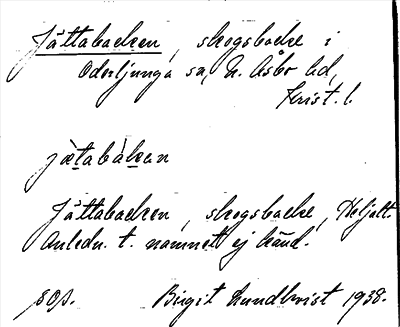 Jättabacken, skogsbacke i
Oderljunga sn, N. Åsbo hd,
Krist. l.
jætabàkan
Jättabacken, skogsbacke,
Anledn. t. namnet ej känd.
sop. Birgit Lundkvist 1938.